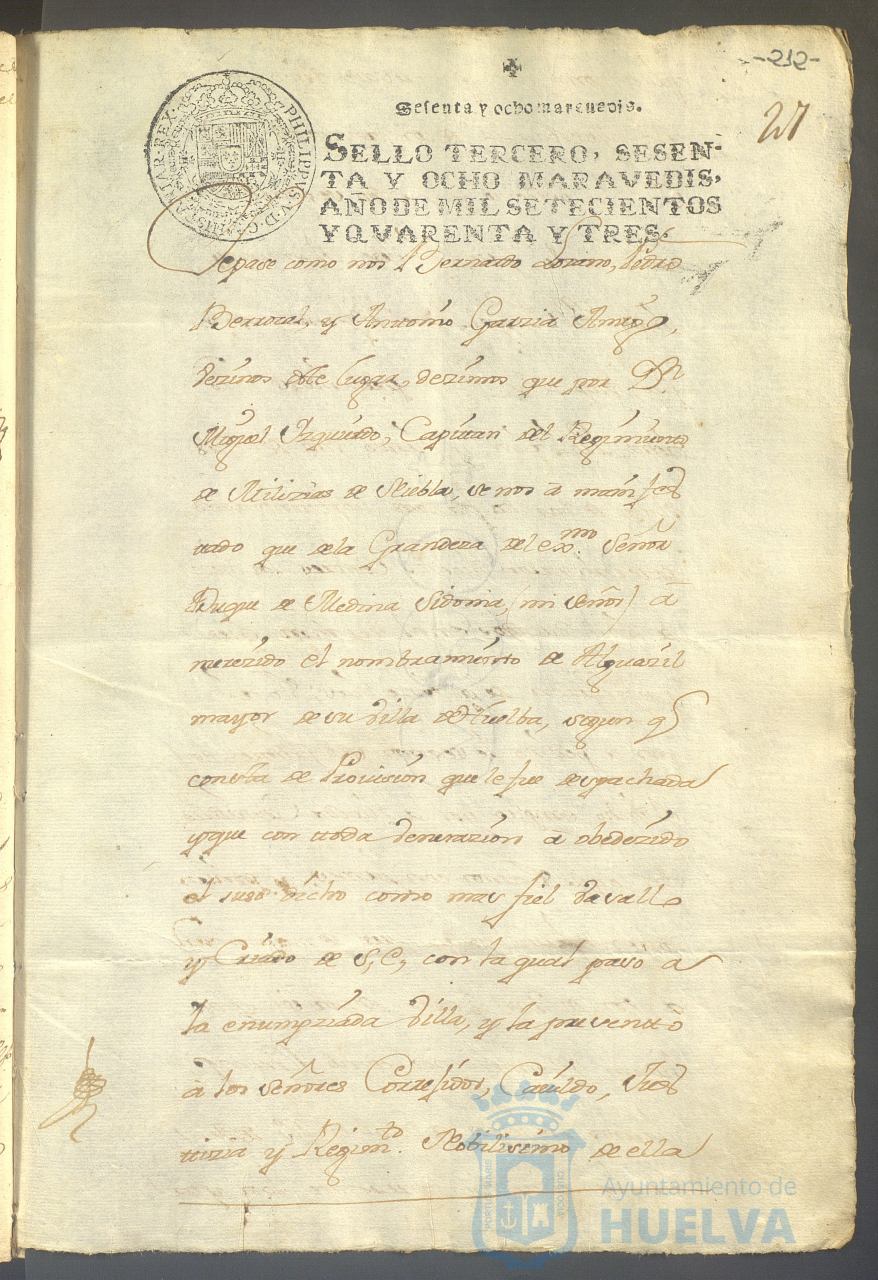 -212-
27
Sesenta y ocho marauedis.
SELLO TERCERO, SESEN-
TA Y OCHO MARAVEDIS,
AÑO DE MIL SETECIENTOS
Y QVARENTA Y TRES.
PHILIPPVS V D G HISPANIAR REX
Sepase como nos Bernardo Lozano, Pedro
Berrocal, y Antonio Garzia
vezinos deste lugar, dezimos que por Dn
Miguel Yzquierdo, Capitan del Regimiento
de Milizias de Niebla, se nos a manifes
tado que dela Grandeza del exmo. Señor
Duque de Medina Sidonia, (mi señor) a
merezido el nombramiento de Alguazil
mayor de su Villa de Huelba, segun q
consta de Provisión que le fue despachada
y que con toda venerazion a obedezido
el suso dicho como mas fiel Vasallo
y Criado de S, E, con la qual paso a
la enumpziada Villa, y la presento
a los señores Correxidor, Cavildo, Jus
tizia y Regimto. Nobilisimo de ella
Ayuntamiento de
HUELVA